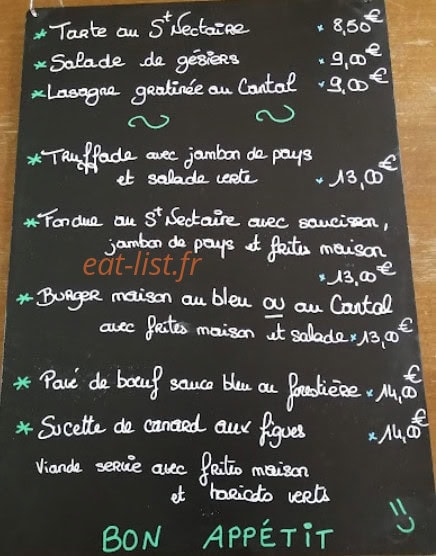 * Tarte au St Nectaire * 8,50€
* Salade de gésiers * 9,00€
* Lasagne gratinée au Cantal * 9,00€
* Truffade avec jambon de pays
et salade verte * 13,00€
* Fondue au St Nectaire avec saucisson,
jambon de pays et frites maison
eat-list.fr
* 13,00€
* Burger maison au bleu ou au Cantal
avec frites maison et salade * 13,00€
* Pavé de bœuf sauce bleu ou forestière * 14,00€
* Sucette de canard aux figues * 14,00€
Viande servie avec frites maison
et haricots verts
BON APPÉTIT